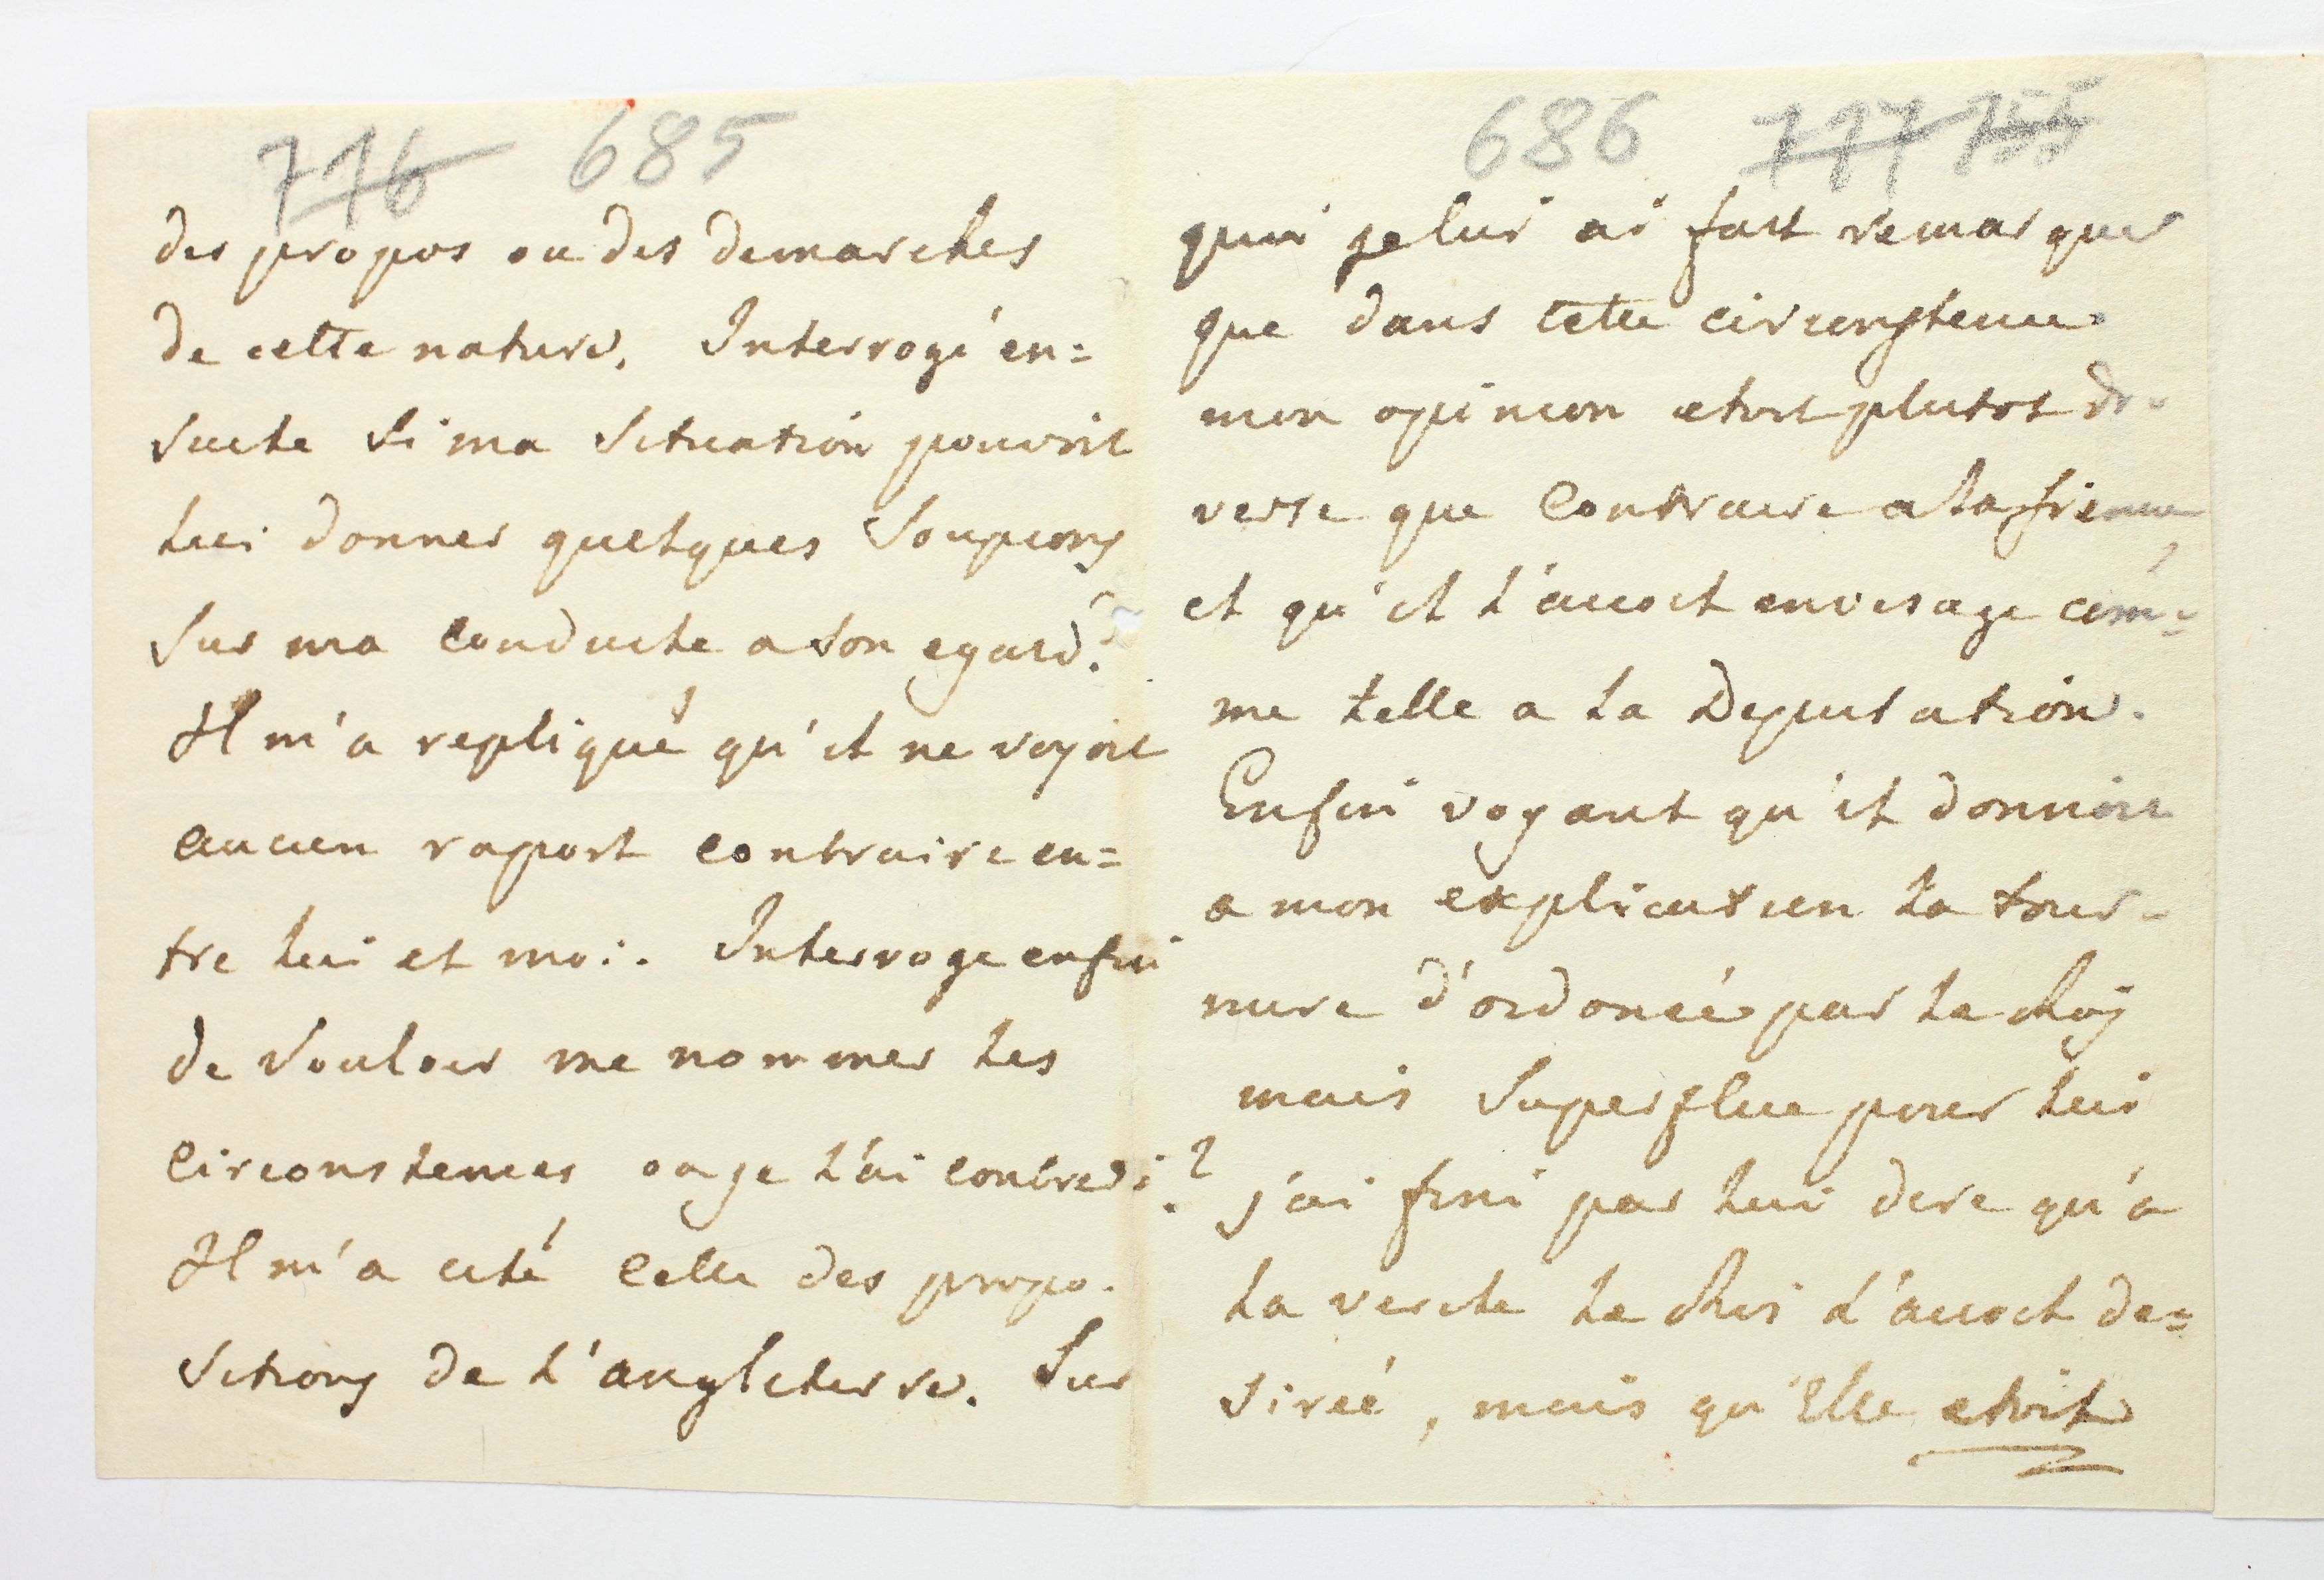 776 685
des propos ou des demarches
de cette nature. Interrogé en=
suite si ma situation pouvoit
lui donner quelques soupçons
sur ma conduite a son egard?
Il m'a repliqué qu'il ne voyoit
aucun raport contraire en=
tre lui et moi. Interrogé enfin
de vouloir me nommer les
circonstences ou je l'ai contredi?
Il m'a cité celle des propo-
sitions de l'angleterre. Sur
686 777 755
quoi je lui ai fait remarquer
que dans cette circonstence
mon opinion etoit plutot di-
verse que contraire a la sienne,
et qu'il l'avoit envisagé com=
me telle a la Deputation.
Enfin voyant qu'il donnoit
a mon explication la tour-
nure d'ordonée par le Roy
mais superflue pour lui
j'ai fini par lui dire qu'a
la verité le Roi l'avoit de=
sireé, mais qu'Elle etoit